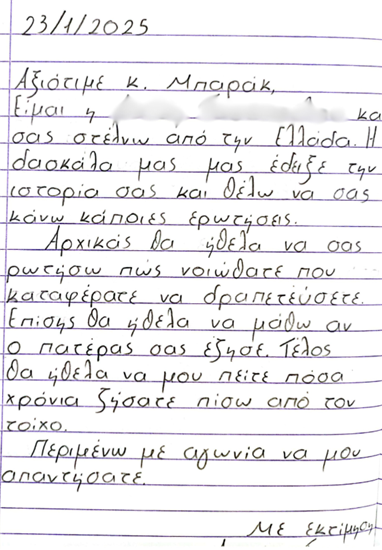 23/1/2025
Αξιότιμε κ. Μπαράκ,
Είμαι η κα
σας στέλνω από την Ελλάδα. Η
δασκάλα μας μας έδειξε την
ιστορία σας και θέλω να σας
κάνω κάποιες ερωτήσεις.
Αρχικάς θα ήθελα να σας
ρωτήσω πώς νοιώθατε που
καταφέρατε να δραπετεύσετε.
Επίσης θα ήθελα να μάθω αν
ο πατέρας σας έζησε. Τέλος
θα ήθελα να μου πείτε πόσα
χρόνια ζήσατε πίσω από τον
τοίχο.
Περιμένω με αγωνία να μου
απαντήσατε.
Με εκτίμηση